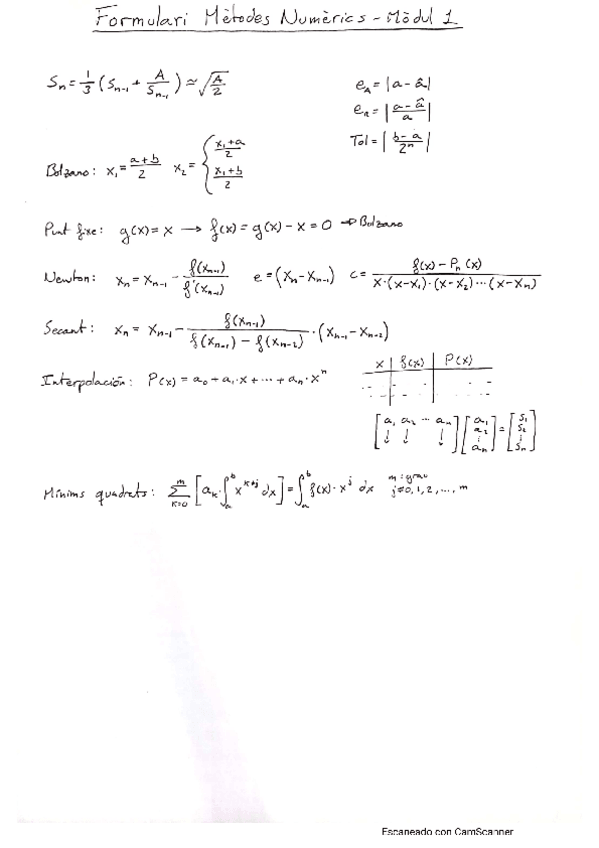 Formulari Mètodes Numèrics - Mòdul 1
Sn = 1/3 (Sn-1 + A/Sn-1) ≃ √(A/2)
eA = |a - â|
eR = |(a - â)/a|
Tol = |(b - a)/2^n|
Bolzano: x1 = (a+b)/2 x2 = { (x1+a)/2
(x1+b)/2
Punt fixe: g(x) = x → f(x) = g(x) - x = 0 → Bolzano
Newton: xn = xn-1 - f(xn-1)/f'(xn-1) e = (xn - xn-1) c = (f(x) - Pn(x))/(x·(x-x1)·(x-x2)···(x-xn))
Secant: xn = xn-1 - f(xn-1)/(f(xn-1) - f(xn-2)) · (xn-1 - xn-2)
x | f(x) | P(x)
Interpolación: P(x) = a0 + a1·x + ··· + an·x^n
[a1 a2 ··· an ↓ ↓ ↓] [a1 a2 ⋮ an] = [s1 s2 ⋮ sn]
Mínims quadrats: Σ(k=0..m) [ak·∫(a..b) x^(k+j) dx] = ∫(a..b) f(x)·x^j dx m: grau
j=0,1,2,...,m
Escaneado con CamScanner